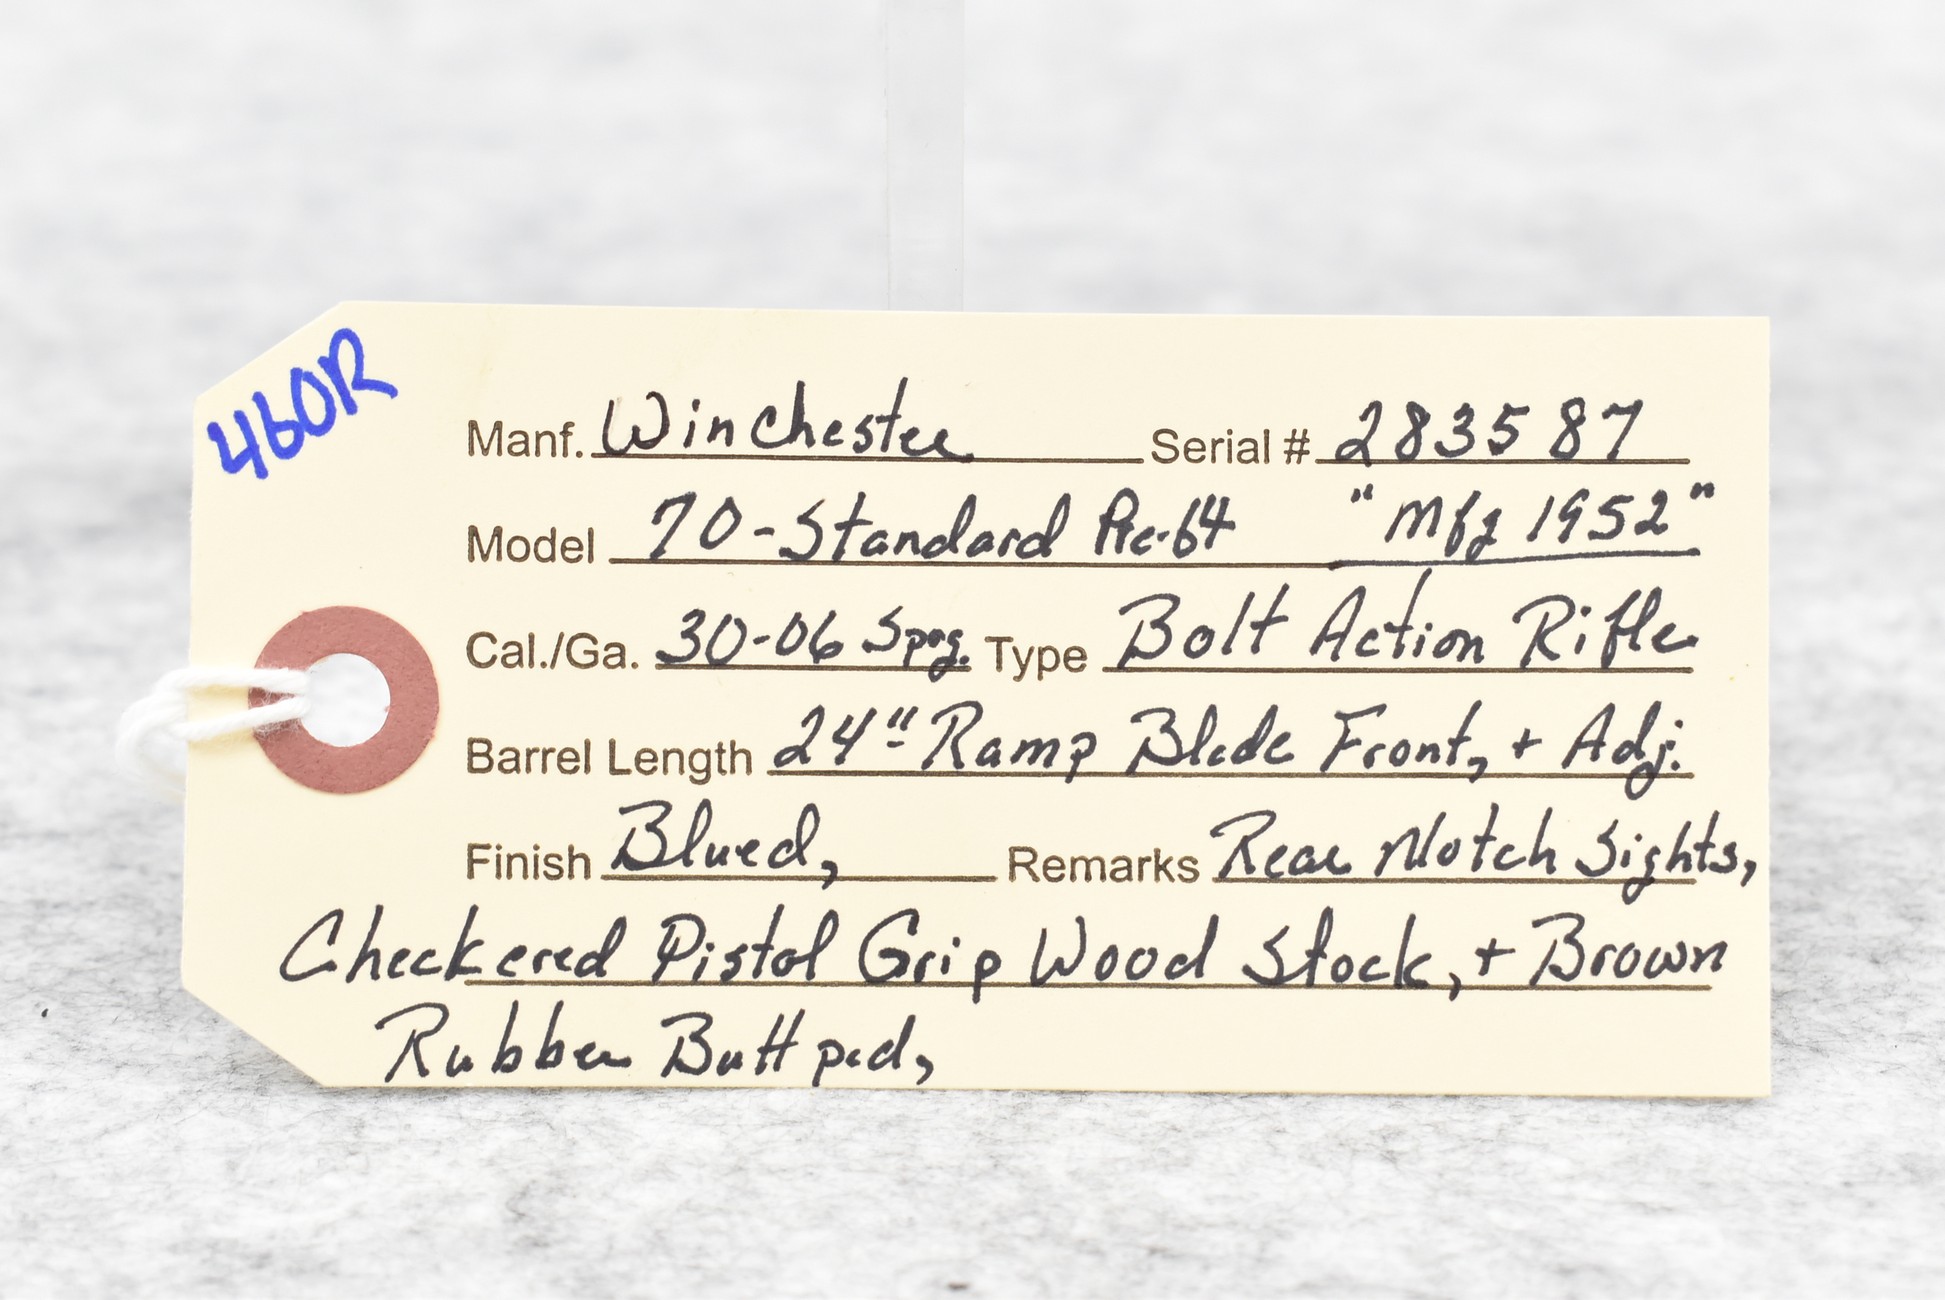 460R
Manf. Winchester Serial # 283587
Model 70-Standard Pre-64 "Mfg 1952"
Cal./Ga. 30-06 Sprg. Type Bolt Action Rifle
Barrel Length 24" Ramp Blade Front, + Adj.
Finish Blued, Remarks Rear Notch Sights,
Checkered Pistol Grip Wood Stock, + Brown
Rubber Buttpad,